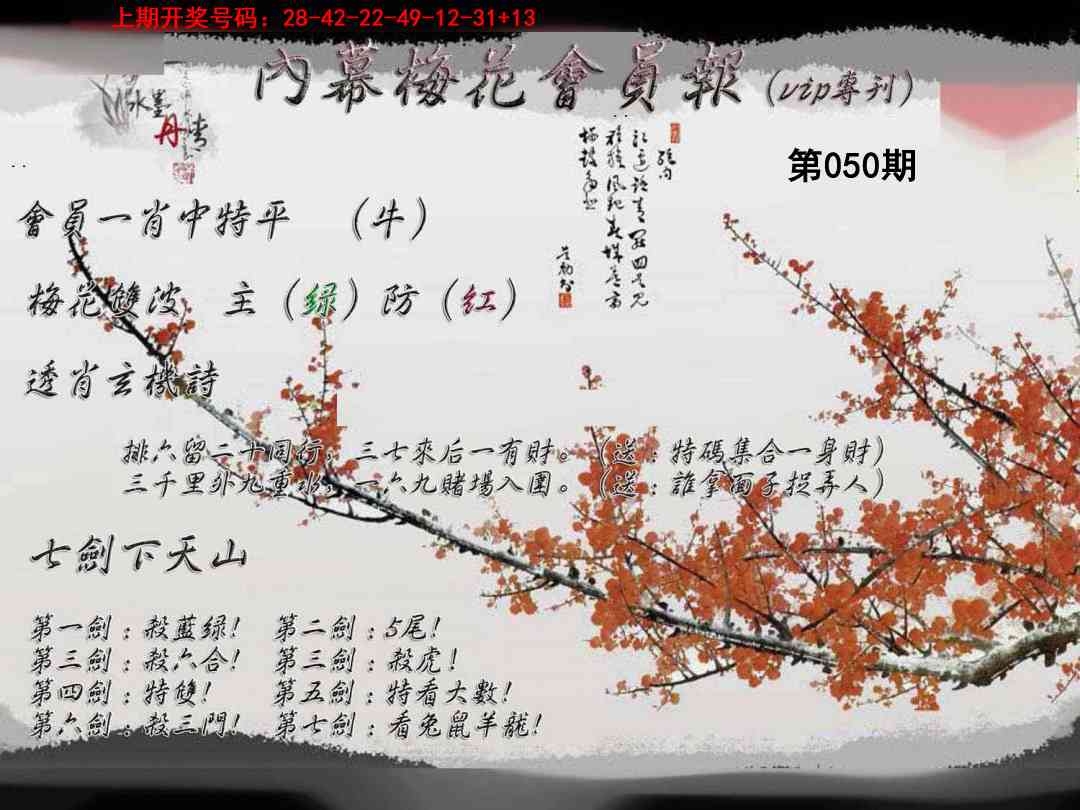 上期开奖号码：28-42-22-49-12-31+13
內幕梅花會員報（vip專刊）
水墨
丹青
第050期
會員一肖中特平　（牛）
梅花雙波　主（绿）防（红）
透肖玄機詩
排六留二十同行，三七來后一有財。（送：特碼集合一身財）
三千里外九重水，一六九賭場入圍。（送：誰拿面子捉弄人）
七劍下天山
第一劍：殺藍绿！　第二劍：5尾！
第三劍：殺六合！　第三劍：殺虎！
第四劍：特雙！　第五劍：特看大數！
第六劍：殺三門！　第七劍：看兔鼠羊龍！